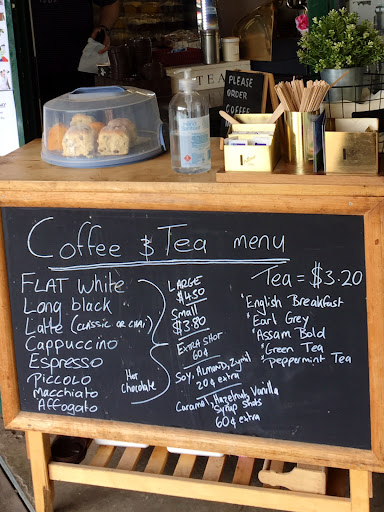 TEA
PLEASE
ORDER
COFFEE
Coffee & Tea menu
FLAT White
Long black
Latte (CLASSIC OR CHAI)
Cappuccino
Espresso
Piccolo
Macchiato
Affogato
Hot
Chocolate
LARGE
$4.50
Small
$3.80
EXTRA SHOT
60¢
Soy, ALMOND, Zymil
20¢ extra
Caramel, Hazelnut, Vanilla
Syrup Shots
60¢ extra
Tea = $3.20
'English Breakfast
'Earl Grey
'Assam Bold
'Green Tea
'Peppermint Tea